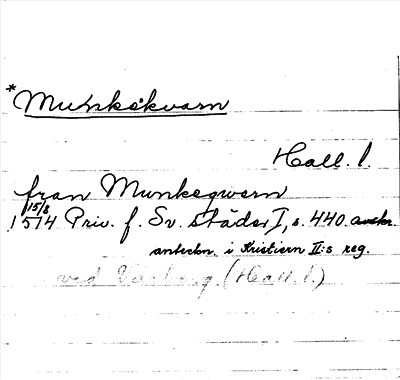 *Munkekvarn
Hall. l.
från Munkeqwern
15/8
1514 Priv. f. Sv. städer I, s. 440
anteckn. i Kristiern II:s reg.
ved Varberg. (Hall. l.)